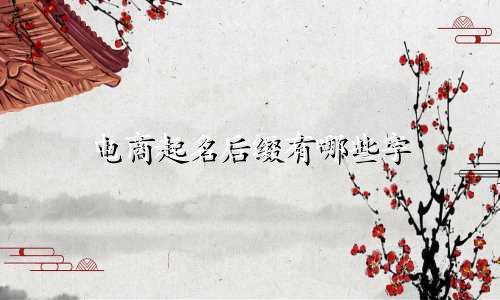 电商起名后缀有哪些字